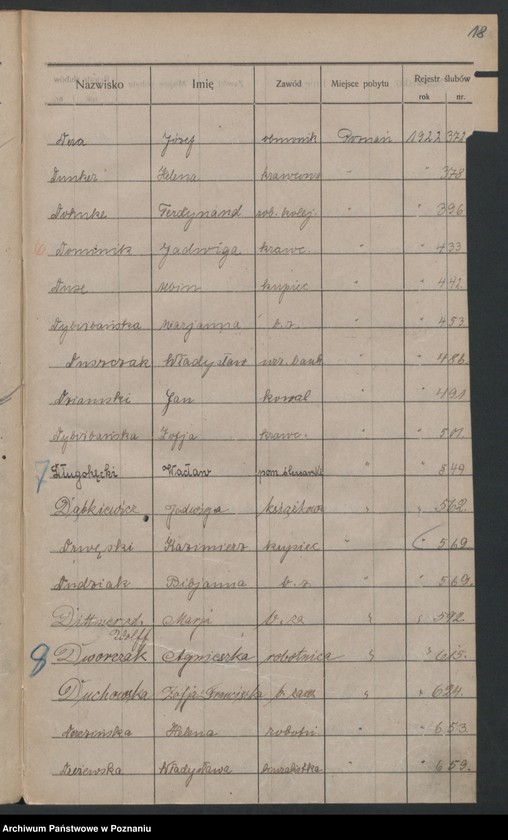 18
Nazwisko Imię Zawód Miejsce pobytu Rejestr ślubów
rok nr.
Dera Józef Poznań 1922 372
Dunker Helena krawcowa " " 378
Dohnke Ferdynand rob. kolej. " " 396
6 Dominik Jadwiga krawc. " " 433
Duse kupiec " " 442
Dybizbańska Marjanna b. z. " " 453
Duszczak Władysław urz. bank " " 486
Dziamski Jan kowal " 491
Dybizbańska Zofja krawc. " " 501
7 Długołęcki Wacław pom ślusarski " " 549
Dąbkiewicz Jadwiga książkowa " " 562
Drwęski Kazimierz kupiec " " 569
Dudziak Bibjanna b. z. " " 569.
Dittmer rd. Marja b. za " " 592.
Wolff
8 Dworczak Agnieszka robotnica " " 615.
Duchowska Zofja Franciszka b. zaw " " 624.
Helena robotn " " 653
Dziewska Władysława " " 659.
Archiwum Państwowe w Poznaniu